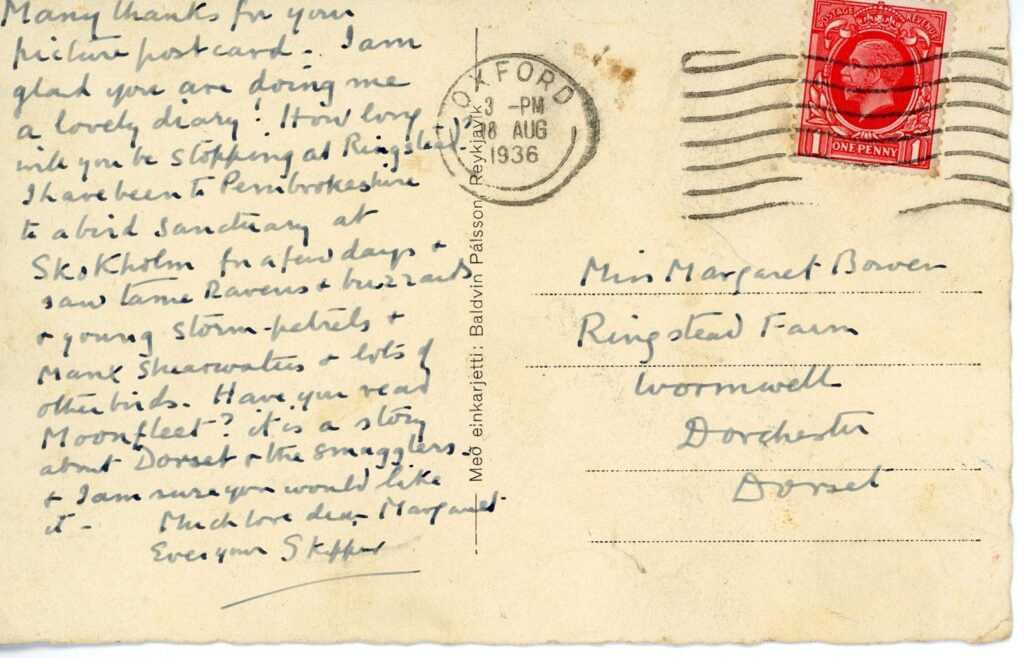 Many thanks for your
picture postcard - I am
glad you are doing me
a lovely diary! How long
will you be stopping at Ringstead?
I have been to Pembrokeshire
to a bird sanctuary at
Skokholm for a few days +
saw tame Ravens + buzzards
+ young storm-petrels +
Manx Shearwaters + lots of
other birds. Have you read
Moonfleet? it is a story
about Dorset + the smugglers -
+ I am sure you would like
it -
Much love dear Margaret
Ever your Skipper
Með einkarjetti: Baldvin Pálsson, Reykjavik
OXFORD
3 -PM
AUG
1936
POSTAGE REVENUE
1 ONE PENNY 1
Miss Margaret Bowen
Ringstead Farm
Wormwell
Dorchester
Dorset